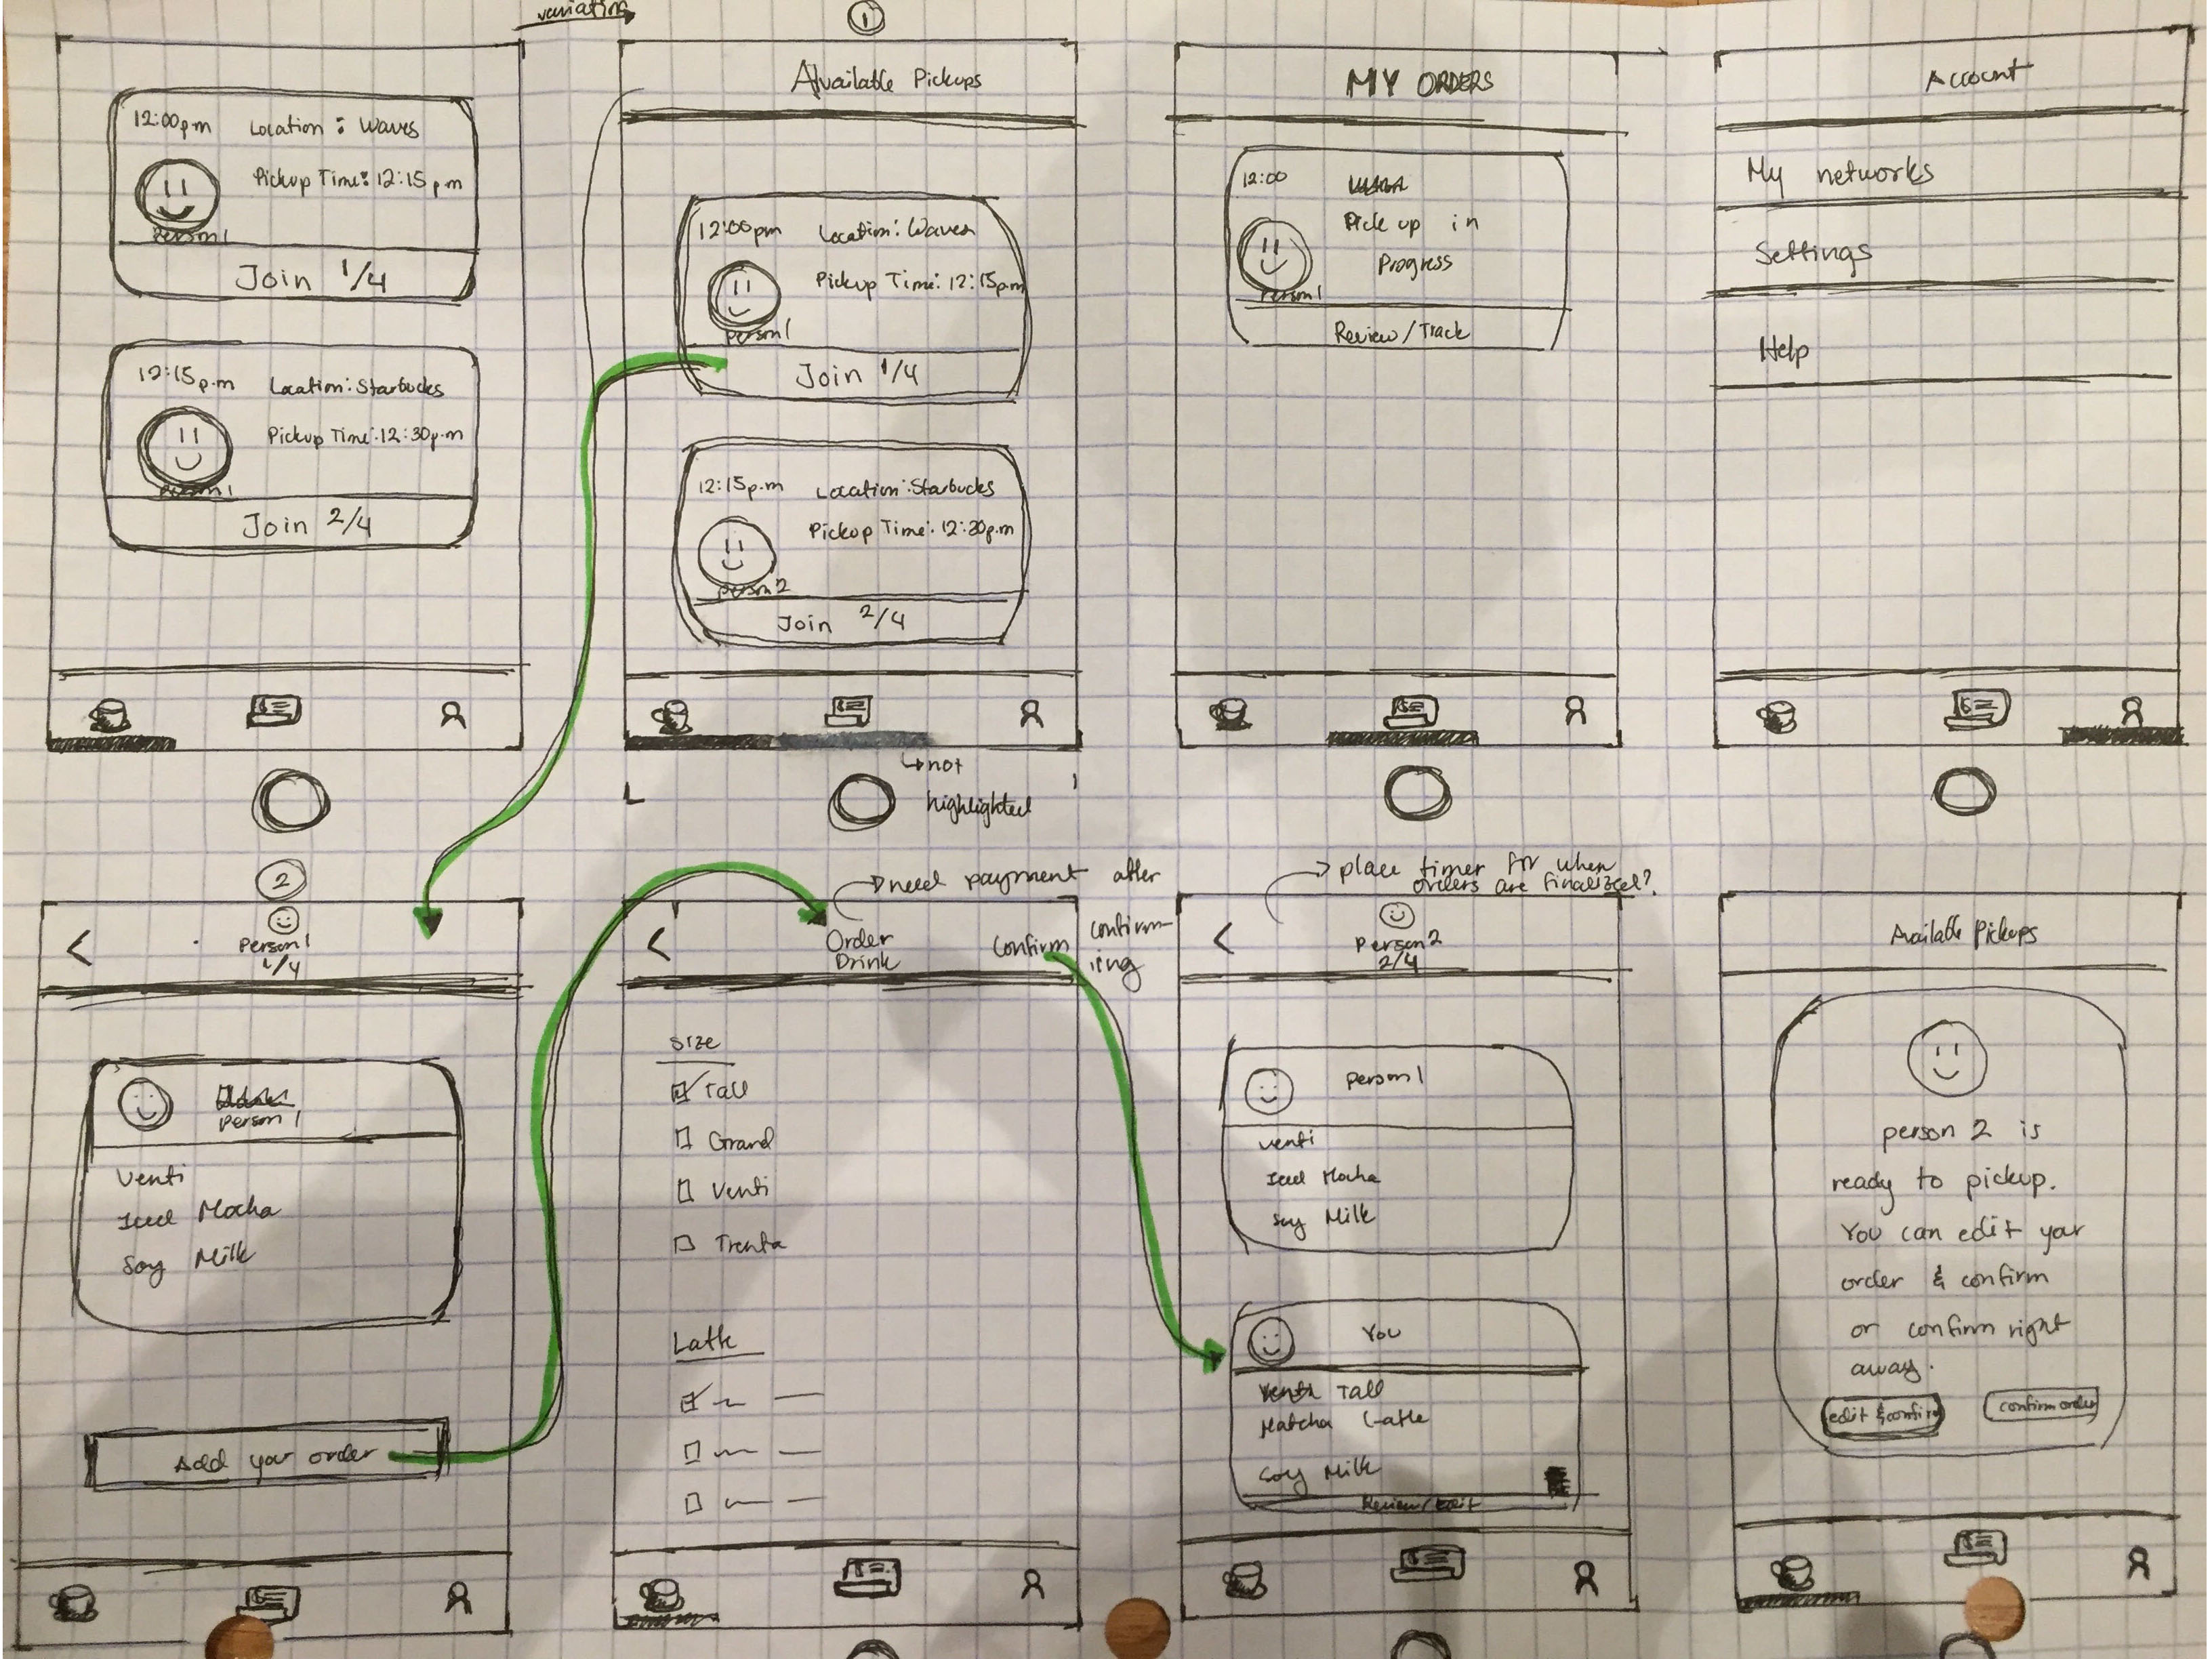 variation
12:00pm Location: Waves
Pickup Time: 12:15pm
Person1
Join 1/4
12:15p.m Location: Starbucks
Pickup Time: 12:30p.m
person1
Join 2/4
1
Available Pickups
12:00pm Location: Waves
Pickup Time: 12:15pm
person1
Join 1/4
12:15p.m Location: Starbucks
Pickup Time: 12:30p.m
person2
Join 2/4
not
highlighted
MY ORDERS
12:00
Pick up in
Progress
Person1
Review/Track
Account
My networks
Settings
Help
2
<
Person1
1/4
Person1
Venti
Iced Mocha
Soy Milk
Add your order
need payment after
confirm-
ing
<
Order
Drink
Confirm
Size
Tall
Grand
Venti
Trenta
Latte
place timer for when
orders are finalized?
<
Person2
2/4
Person1
venti
Iced Mocha
Soy Milk
You
Tall
Matcha Latte
Soy Milk
Review/Edit
Available Pickups
person 2 is
ready to pickup.
You can edit your
order & confirm
or confirm right
away.
edit & confirm
confirm order